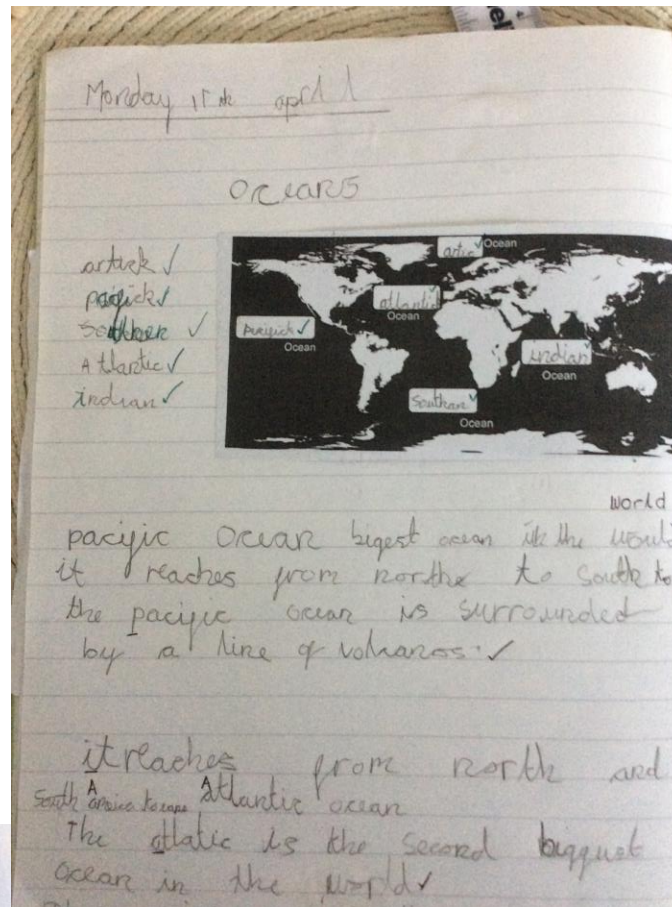 Monday 15th april
oceans
artick
pacifick
Southern
Atlantic
indian
artic
Ocean
atlantic
Ocean
pacifick
Ocean
indian
Ocean
Southan
Ocean
world
pacific Ocean bigest ocean in the
it reaches from northe to South to
the pacific ocean is surrounded
by a line of volcanos.
it reaches from north and
South to Atlantic ocean
The atlatic is the second biggust
ocean in the world